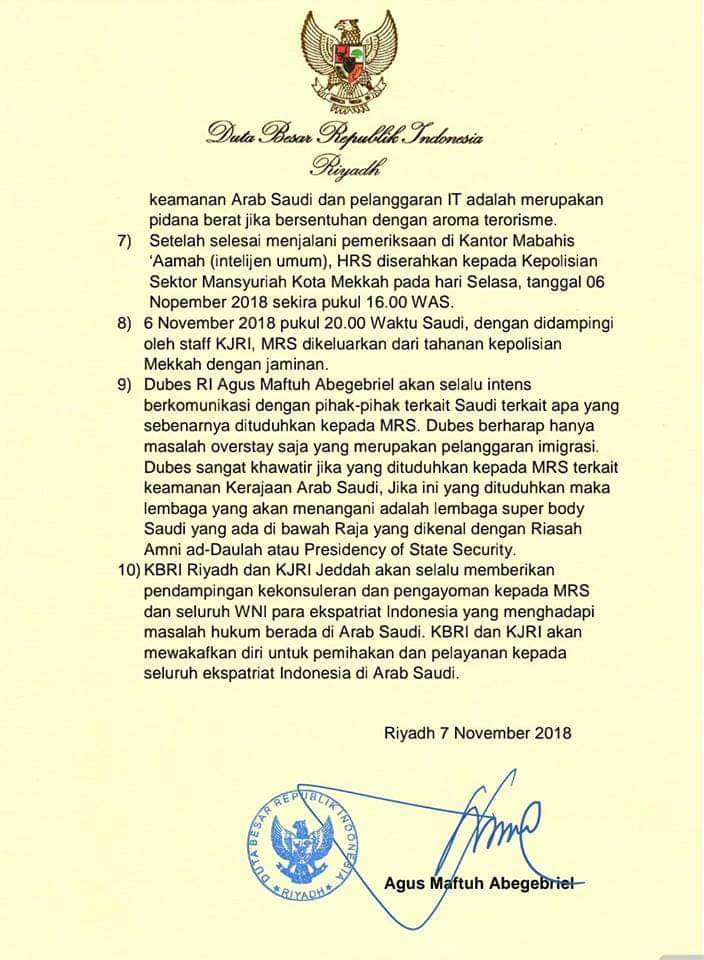 Duta Besar Republik Indonesia
Riyadh
keamanan Arab Saudi dan pelanggaran IT adalah merupakan
pidana berat jika bersentuhan dengan aroma terorisme.
7) Setelah selesai menjalani pemeriksaan di Kantor Mabahis
‘Aamah (intelijen umum), HRS diserahkan kepada Kepolisian
Sektor Mansyuriah Kota Mekkah pada hari Selasa, tanggal 06
Nopember 2018 sekira pukul 16.00 WAS.
8) 6 November 2018 pukul 20.00 Waktu Saudi, dengan didampingi
oleh staff KJRI, MRS dikeluarkan dari tahanan kepolisian
Mekkah dengan jaminan.
9) Dubes RI Agus Maftuh Abegebriel akan selalu intens
berkomunikasi dengan pihak-pihak terkait Saudi terkait apa yang
sebenarnya dituduhkan kepada MRS. Dubes berharap hanya
masalah overstay saja yang merupakan pelanggaran imigrasi.
Dubes sangat khawatir jika yang dituduhkan kepada MRS terkait
keamanan Kerajaan Arab Saudi, Jika ini yang dituduhkan maka
lembaga yang akan menangani adalah lembaga super body
Saudi yang ada di bawah Raja yang dikenal dengan Riasah
Amni ad-Daulah atau Presidency of State Security.
10) KBRI Riyadh dan KJRI Jeddah akan selalu memberikan
pendampingan kekonsuleran dan pengayoman kepada MRS
dan seluruh WNI para ekspatriat Indonesia yang menghadapi
masalah hukum berada di Arab Saudi. KBRI dan KJRI akan
mewakafkan diri untuk pemihakan dan pelayanan kepada
seluruh ekspatriat Indonesia di Arab Saudi.
Riyadh 7 November 2018
DUTA BESAR REPUBLIK INDONESIA
RIYADH
Agus Maftuh Abegebriel